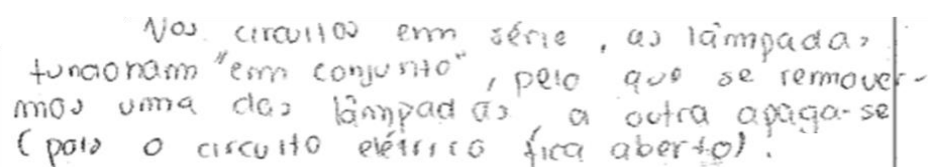 Nos circuitos em série, as lâmpadas
funcionam "em conjunto", pelo que se remover-
mos uma das lâmpadas, a outra apaga-se
(pois o circuito elétrico fica aberto).